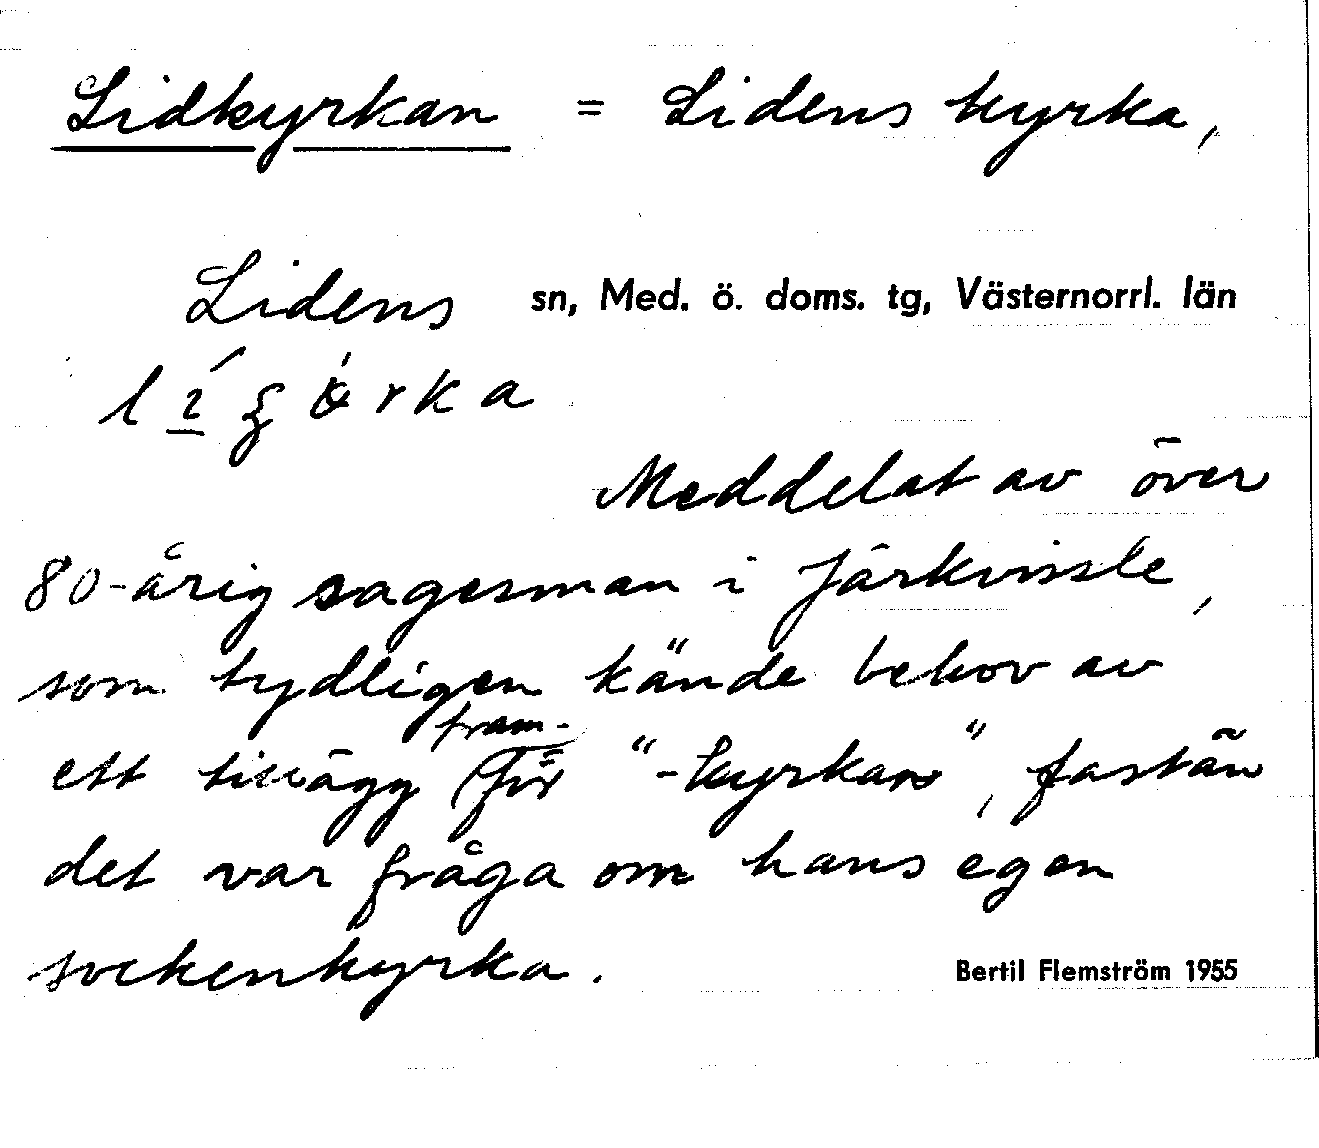 Lidkyrkan = Lidens kyrka,
Lidens sn, Med. ö. doms. tg, Västernorrl. län
Meddelat av över
80-årig sagesman i Järkvissle,
som tydligen kände behov av
ett tillägg framför "-kyrkan", fastän
det var fråga om hans egen
sockenkyrka.
Bertil Flemström 1955